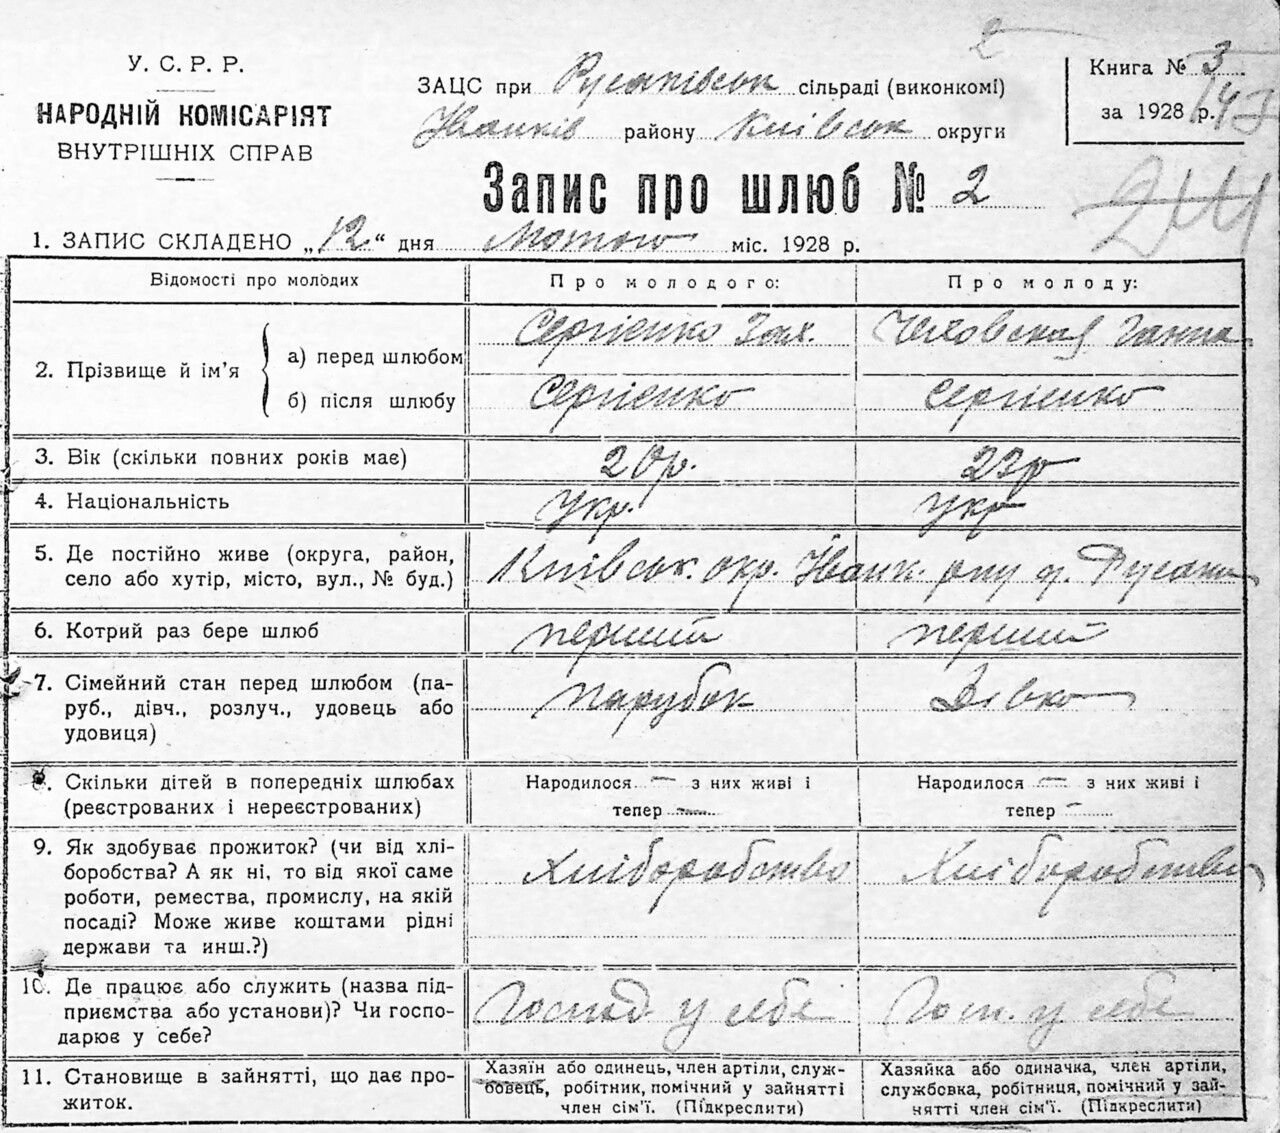 У. С. Р. Р.
НАРОДНІЙ КОМІСАРІЯТ
ВНУТРІШНІХ СПРАВ
2
ЗАЦС при Русаківськ сільраді (виконкомі)
Іванків району Київськ округи
Книга № 3
за 1928 р.
Запис про шлюб № 2
1. ЗАПИС СКЛАДЕНО „12“ дня Лютого міс. 1928 р.
Відомості про молодих
Про молодого:
Про молоду:
2. Прізвище й ім’я
а) перед шлюбом
Сергієнко Зах.
Чеховская Ганна
б) після шлюбу
Сергієнко
Сергієнко
3. Вік (скільки повних років має)
20р.
22р
4. Національність
Укр.
Укр
5. Де постійно живе (округа, район,
село або хутір, місто, вул., № буд.)
Київськ. окр. Іванк. рну с. Русаки
6. Котрий раз бере шлюб
перший
перший
7. Сімейний стан перед шлюбом (па-
руб., дівч., розлуч., удовець або
удовиця)
парубок
Дівка
8. Скільки дітей в попередніх шлюбах
(реєстрованих і нереєстрованих)
Народилося — з них живі і
тепер —
Народилося — з них живі і
тепер —
9. Як здобуває прожиток? (чи від хлі-
боробства? А як ні, то від якої саме
роботи, ремества, промислу, на якій
посаді? Може живе коштами рідні
держави та инш.?)
Хліборобство
Хліборобство
10. Де працює або служить (назва під-
приємства або установи)? Чи госпо-
дарює у себе?
Господ. у себе
Госп. у себе
11. Становище в зайнятті, що дає про-
житок.
Хазяїн або одинець, член артіли, служ-
бовець, робітник, помічний у зайнятті
член сім’ї. (Підкреслити)
Хазяйка або одиначка, член артіли,
службовка, робітниця, помічний у зай-
нятті член сім’ї. (Підкреслити)